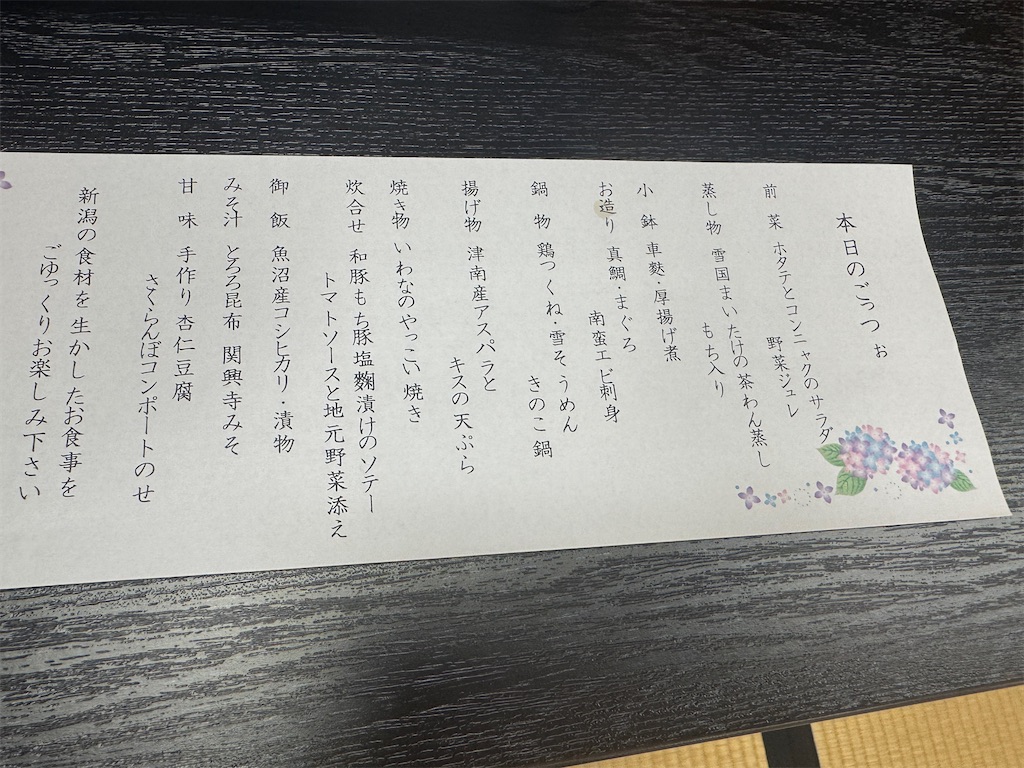 本日のごっつぉ
前菜 ホタテとコンニャクのサラダ
野菜ジュレ
蒸し物 雪国まいたけの茶わん蒸し
もち入り
小鉢 車麩・厚揚げ煮
お造り 真鯛・まぐろ
南蛮エビ刺身
鍋物 鶏つくね・雪そうめん
きのこ鍋
揚げ物 津南産アスパラと
キスの天ぷら
焼き物 いわなのやっこい焼き
炊合せ 和豚もち豚塩麴漬けのソテー
トマトソースと地元野菜添え
御飯 魚沼産コシヒカリ・漬物
みそ汁 とろろ昆布 関興寺みそ
甘味 手作り杏仁豆腐
さくらんぼコンポートのせ
新潟の食材を生かしたお食事を
ごゆっくりお楽しみ下さい